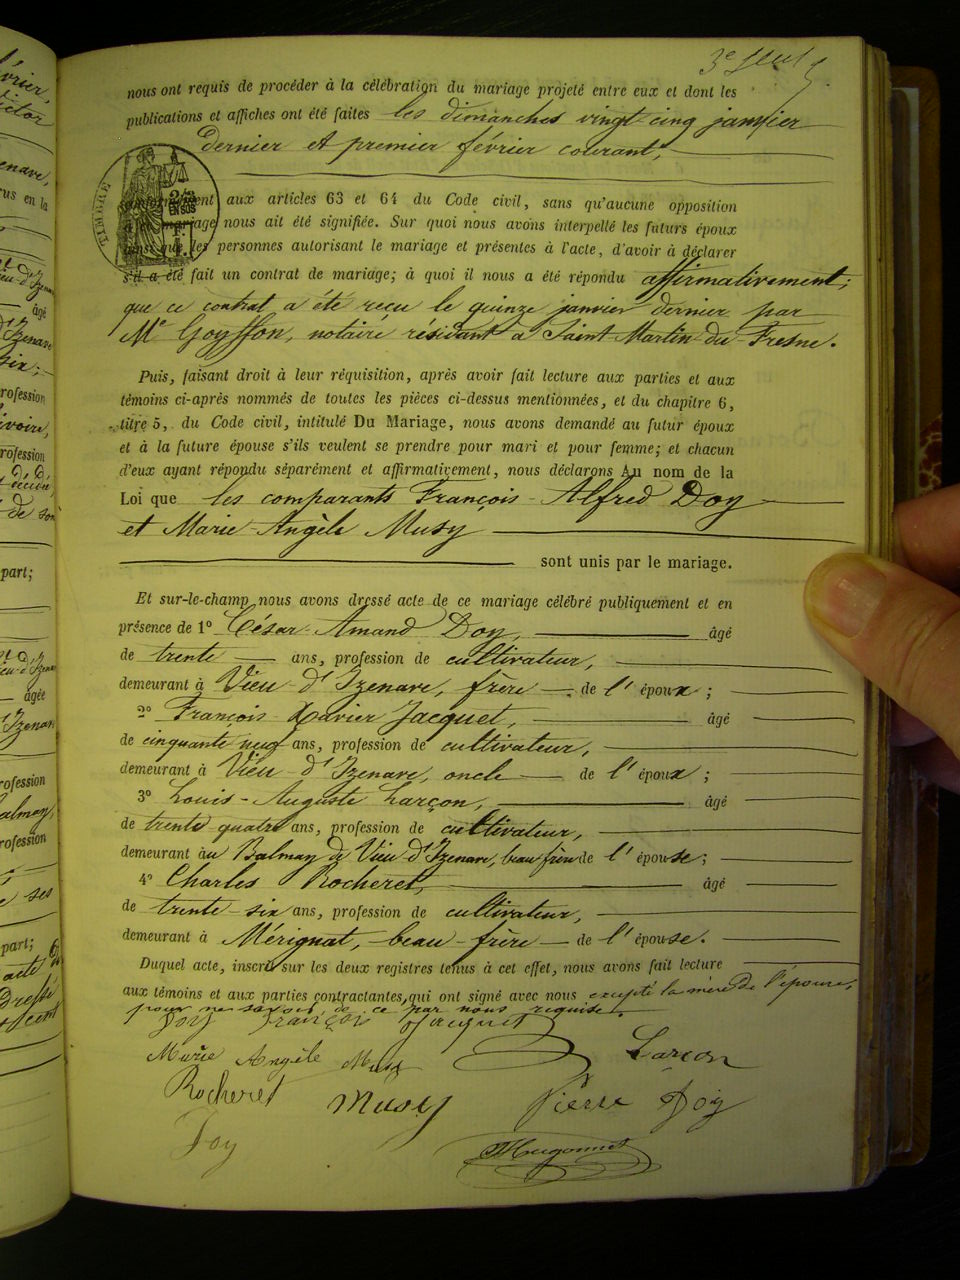 3e feuil
nous ont requis de procéder à la célébration du mariage projeté entre eux et dont les
publications et affiches ont été faites les dimanches vingt-cinq janvier
dernier et premier février courant,
TIMBRE
aux articles 63 et 64 du Code civil, sans qu'aucune opposition
mariage nous ait été signifiée. Sur quoi nous avons interpellé les futurs époux
ainsi que les personnes autorisant le mariage et présentes à l'acte, d'avoir à déclarer
s'il a été fait un contrat de mariage; à quoi il nous a été répondu affirmativement;
que ce contrat a été reçu le quinze janvier dernier par
Me Goyffon, notaire résidant à Saint-Martin-du-Fresne.
Puis, faisant droit à leur réquisition, après avoir fait lecture aux parties et aux
témoins ci-après nommés de toutes les pièces ci-dessus mentionnées, et du chapitre 6,
titre 5, du Code civil, intitulé Du Mariage, nous avons demandé au futur époux
et à la future épouse s'ils veulent se prendre pour mari et pour femme; et chacun
d'eux ayant répondu séparément et affirmativement, nous déclarons Au nom de la
Loi que les comparants François-Alfred Doy
et Marie-Angèle Musy
sont unis par le mariage.
Et sur-le-champ nous avons dressé acte de ce mariage célébré publiquement et en
présence de 1º César-Amand Doy, âgé
de trente ans, profession de cultivateur,
demeurant à Vieu-d'Izenave, frère de l'époux;
2º François-Xavier Jacquet, âgé
de cinquante neuf ans, profession de cultivateur,
demeurant à Vieu-d'Izenave, oncle de l'époux;
3º Louis-Auguste Larçon, âgé
de trente-quatre ans, profession de cultivateur,
demeurant au Balmay de Vieu-d'Izenave, beau frère de l'épouse;
4º Charles Rocheret, âgé
de trente-six ans, profession de cultivateur,
demeurant à Mérignat, beau-frère de l'épouse.
Duquel acte, inscrit sur les deux registres tenus à cet effet, nous avons fait lecture
aux témoins et aux parties contractantes, qui ont signé avec nous excepté la mère de l'épouse,
pour ne savoir, de ce par nous requise.
Doy François Jacquet
Marie Angèle Musy Larçon
Rocheret Musy Pierre Doy
Doy
Hugonnet